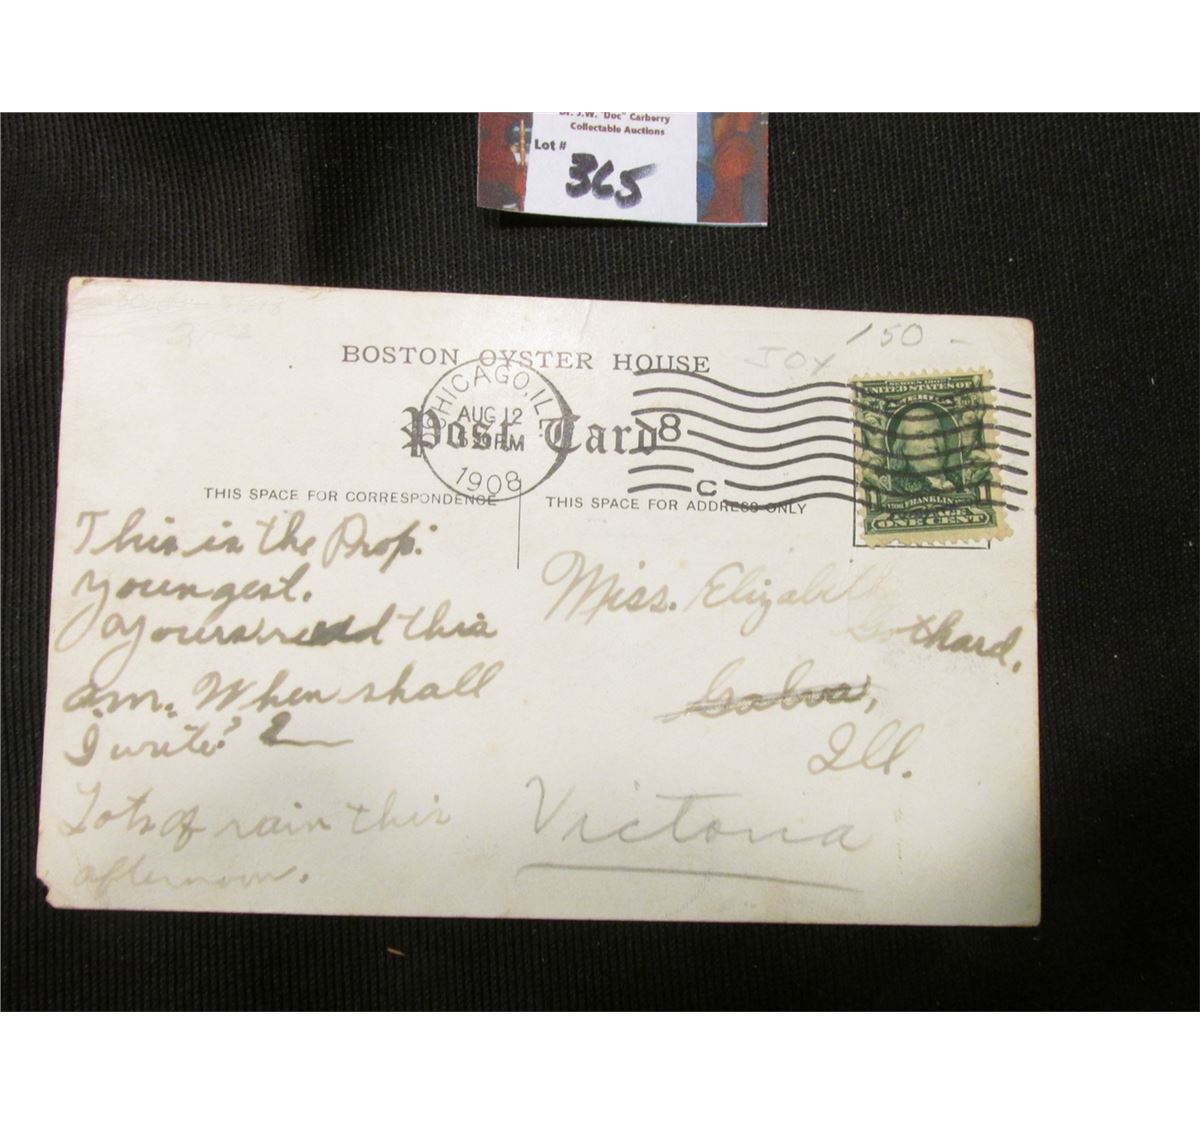 Dr. J.W. "Doc" Carberry
Collectable Auctions
Lot #
365
150 -
JOY
BOSTON OYSTER HOUSE
Post Card
CHICAGO, ILL.
AUG 12
PM
1908
8
C
SERIES 1902
UNITED STATES OF
AMERICA
FRANKLIN
POSTAGE
ONE CENT
THIS SPACE FOR CORRESPONDENCE
THIS SPACE FOR ADDRESS ONLY
This is the Prop.
youngest.
Yours rec'd this
a.m. When shall
I write?
Lots of rain this
afternoon.
Miss. Elizabeth
Gothard.
Galva,
Ill.
Victoria